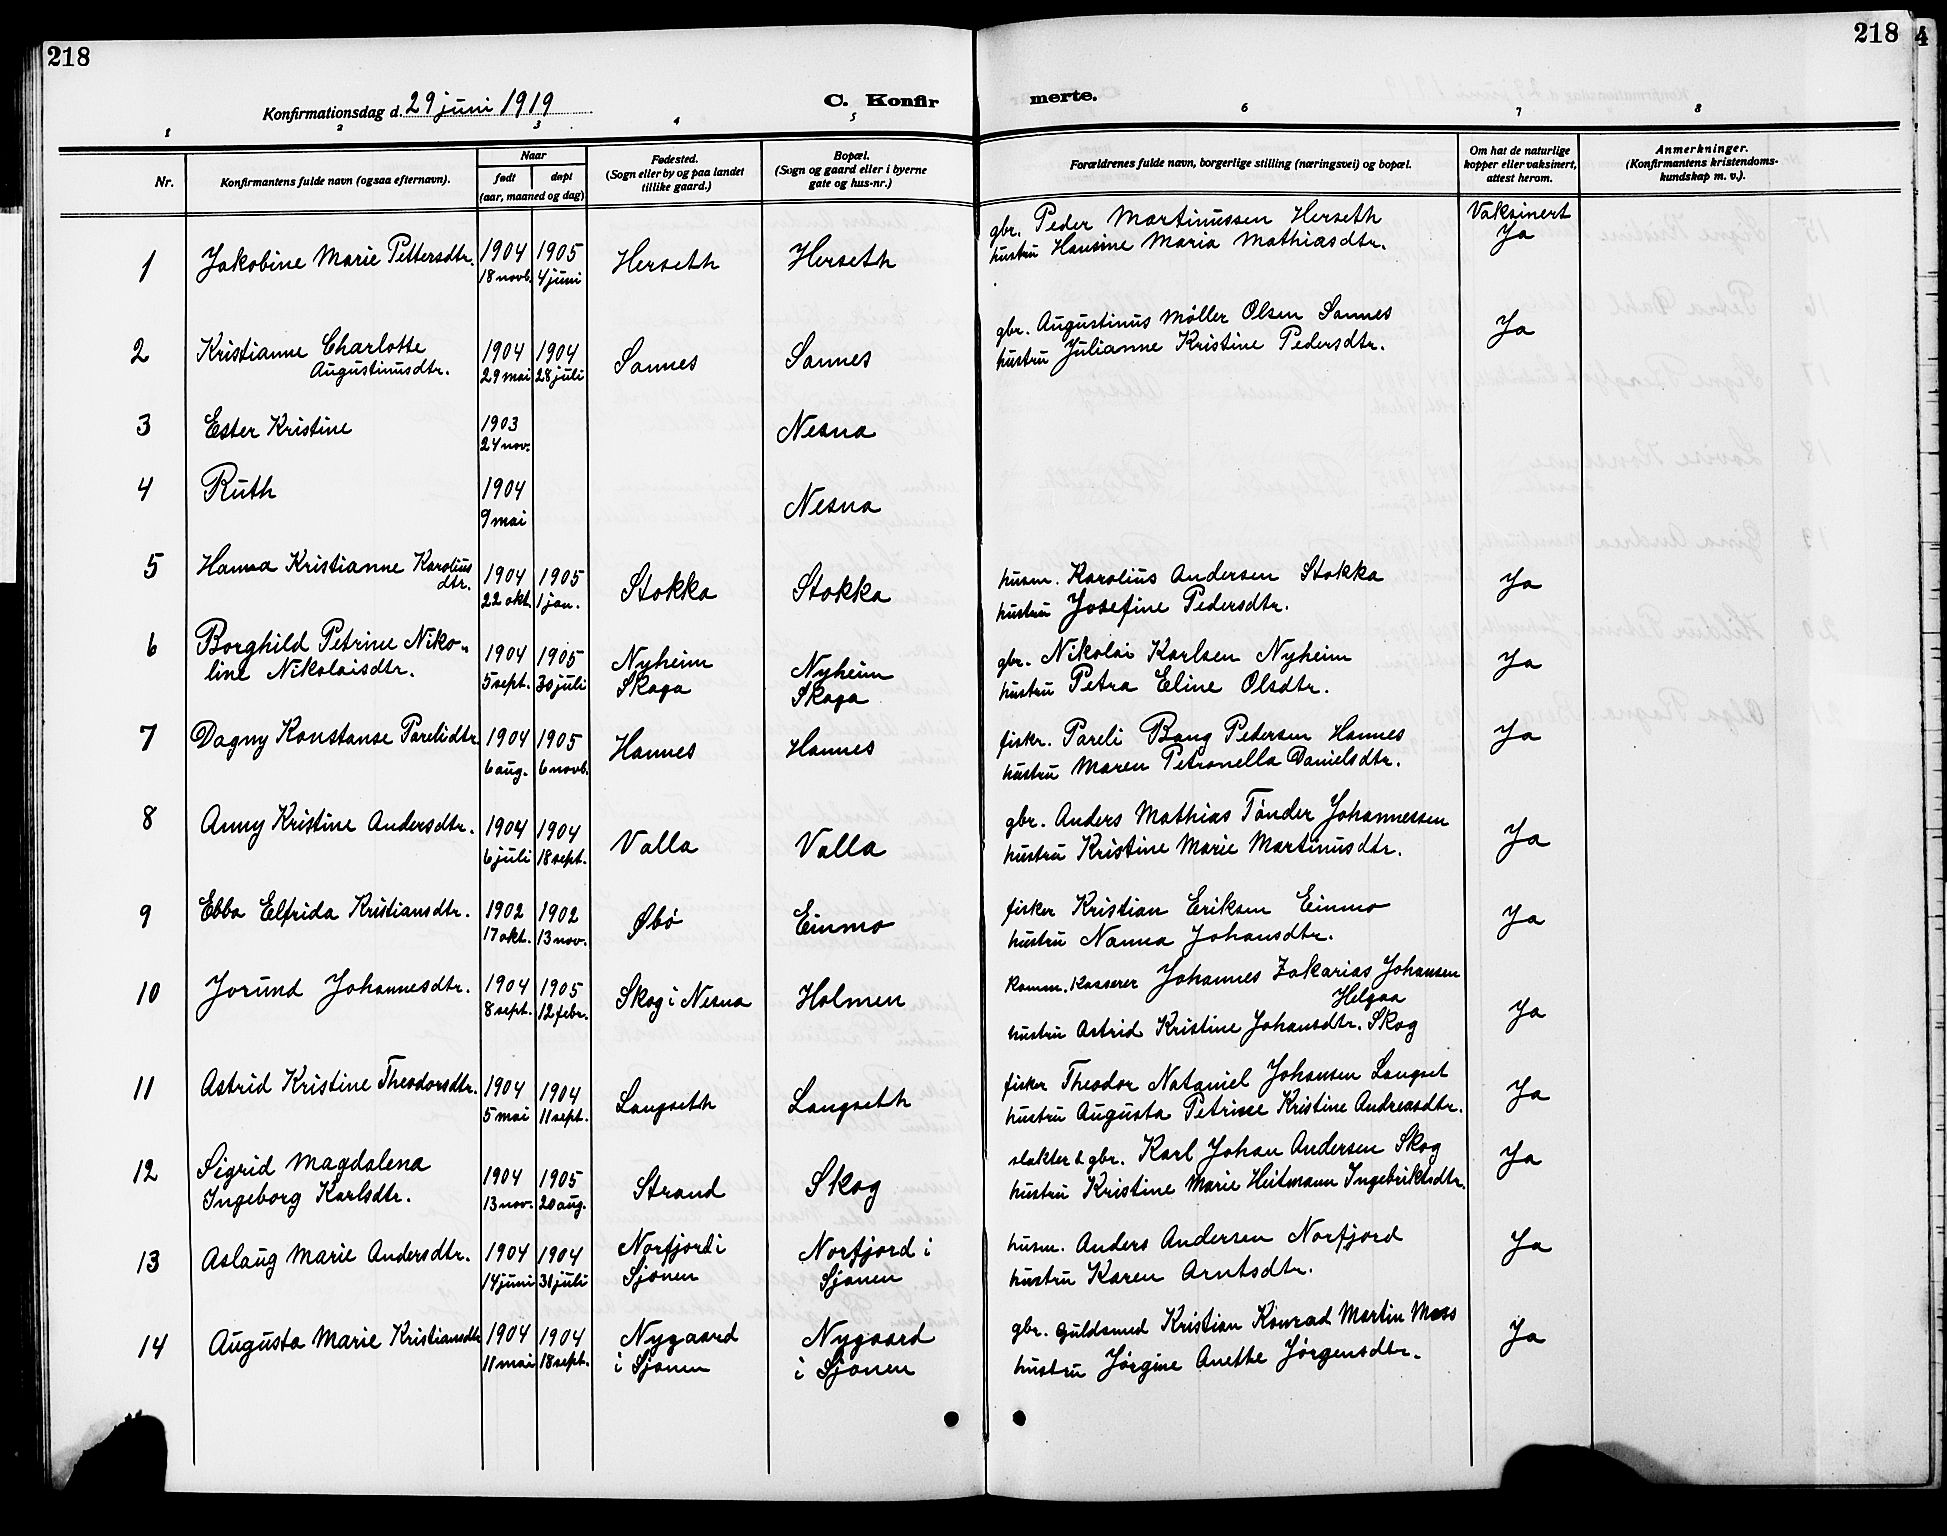 218
218
4
Konfirmationsdag d. 29 juni 1919
C. Konfir
merte.
1 2 3 4 5 6 7 8
Nr.
Konfirmantens fulde navn (ogsaa efternavn).
Naar
født
døpt
(aar, maaned og dag)
Fødested.
(Sogn eller by og paa landet
tillike gaard.)
Bopæl.
(Sogn og gaard eller i byerne
gate og hus-nr.)
Forældrenes fulde navn, borgerlige stilling (næringsvei) og bopæl.
Om hat de naturlige
kopper eller vaksinert,
attest herom.
Anmerkninger.
(Konfirmantens kristendoms-
kundskap m. v.).
gbr. Peder Martinussen Herseth Vaksinert
1 Jakobine Marie Pettersdtr. 1904 1905 Herseth Herseth hustru Hansine Maria Mathiasdtr. Ja
18 novb. 4 juni
gbr. Augustinus Møller Olsen Sannes Ja
2 Kristianne Charlotte 1904 1904 Sannes Sannes hustru Julianne Kristine Pedersdtr.
Augustinusdtr. 29 mai 28 juli
3 Ester Kristine 1903 Nesna
24 nov.
4 Ruth 1904 Nesna
9 mai
5 Hanna Kristianne Karolius 1904 1905 Stokka Stokka husm. Karolius Andersen Stokka Ja
dtr. 22 okt. 1 jan. hustru Josefine Pedersdtr.
6 Borghild Petrine Niko- 1904 1905 Nyheim Nyheim gbr. Nikolai Karlsen Nyheim Ja
line Nikolaisdtr. 5 sept. 30 juli Skaga Skaga hustru Petra Eline Olsdtr.
7 Dagny Konstanse Parelidtr 1904 1905 Hannes Hannes fiskr. Pareli Bang Pedersen Hannes Ja
6 aug. 6 novb. hustru Maren Petronella Danielsdtr.
8 Anny Kristine Andersdtr. 1904 1904 Valla Valla gbr. Anders Mathias Tønder Johannessen Ja
6 juli 18 sept. hustru Kristine Marie Martinusdtr.
9 Ebba Elfrida Kristiansdtr. 1902 1902 Øbø Einmo fisker Kristian Eriksen Einmo Ja
17 okt. 13 nov. hustru Nanna Johansdtr.
10 Jorund Johannesdtr. 1904 1905 Skog i Nesna Holmen Komm. Kasserer Johannes Zakarias Johansen Ja
8 sept. 12 febr. Helgaa
hustru Astrid Kristine Johansdtr. Skog
11 Astrid Kristine Theodorsdtr. 1904 1904 Langseth Langseth fisker Theodor Nataniel Johansen Langset Ja
5 mai 11 sept. hustru Augusta Petrine Kristine Andreasdtr.
12 Sigrid Magdalena 1904 1905 Strand Skog slakter & gbr. Karl Johan Andersen Skog Ja
Ingeborg Karlsdtr. 13 nov. 20 aug. hustru Kristine Marie Heitmann Ingebriktsdtr.
13 Aslaug Marie Andersdtr. 1904 1904 Norfjord i Norfjord i husm. Anders Andersen Norfjord Ja
14 juni 31 juli Sjonen Sjonen hustru Karen Arntsdtr.
14 Augusta Marie Kristiansdtr 1904 1904 Nygaard Nygaard gbr. Guldsmed Kristian Konrad Martin Moss Ja
11 mai 18 sept. i Sjonen i Sjonen hustru Jørgine Anette Jørgensdtr.